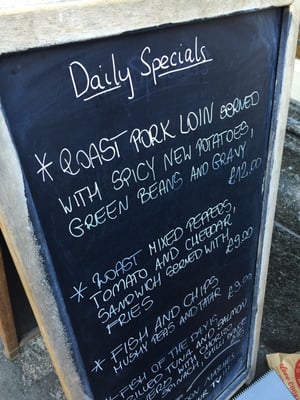 Daily Specials
* ROAST PORK LOIN SERVED
WITH SPICY NEW POTATOES,
GREEN BEANS AND GRAVY
£12.00
* ROAST MIXED PEPPERS,
TOMATO AND CHEDDAR
SANDWICH SERVED WITH
FRIES £9.00
* FISH AND CHIPS £9.00
MUSHY PEAS AND TATAR
* FISH OF THE DAY:
GRILLED TUNA AND SALMON
SERVED WITH
SPINACH, CHILLI
TV